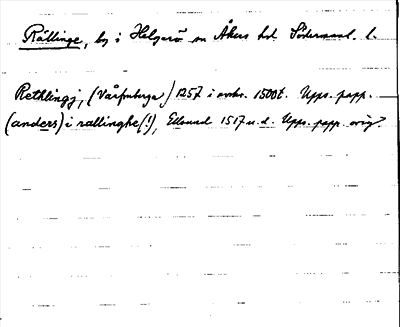 Rällinge, by i Helgarö sn Åkers hd. Södermanl. l.
Rethlingj, (Vårfruberga) 1257 i avskr. 1500t. Upps. papp.
(anders) i rællinghe (!), Edlund 1517 u.d. Upps. papp. orig.